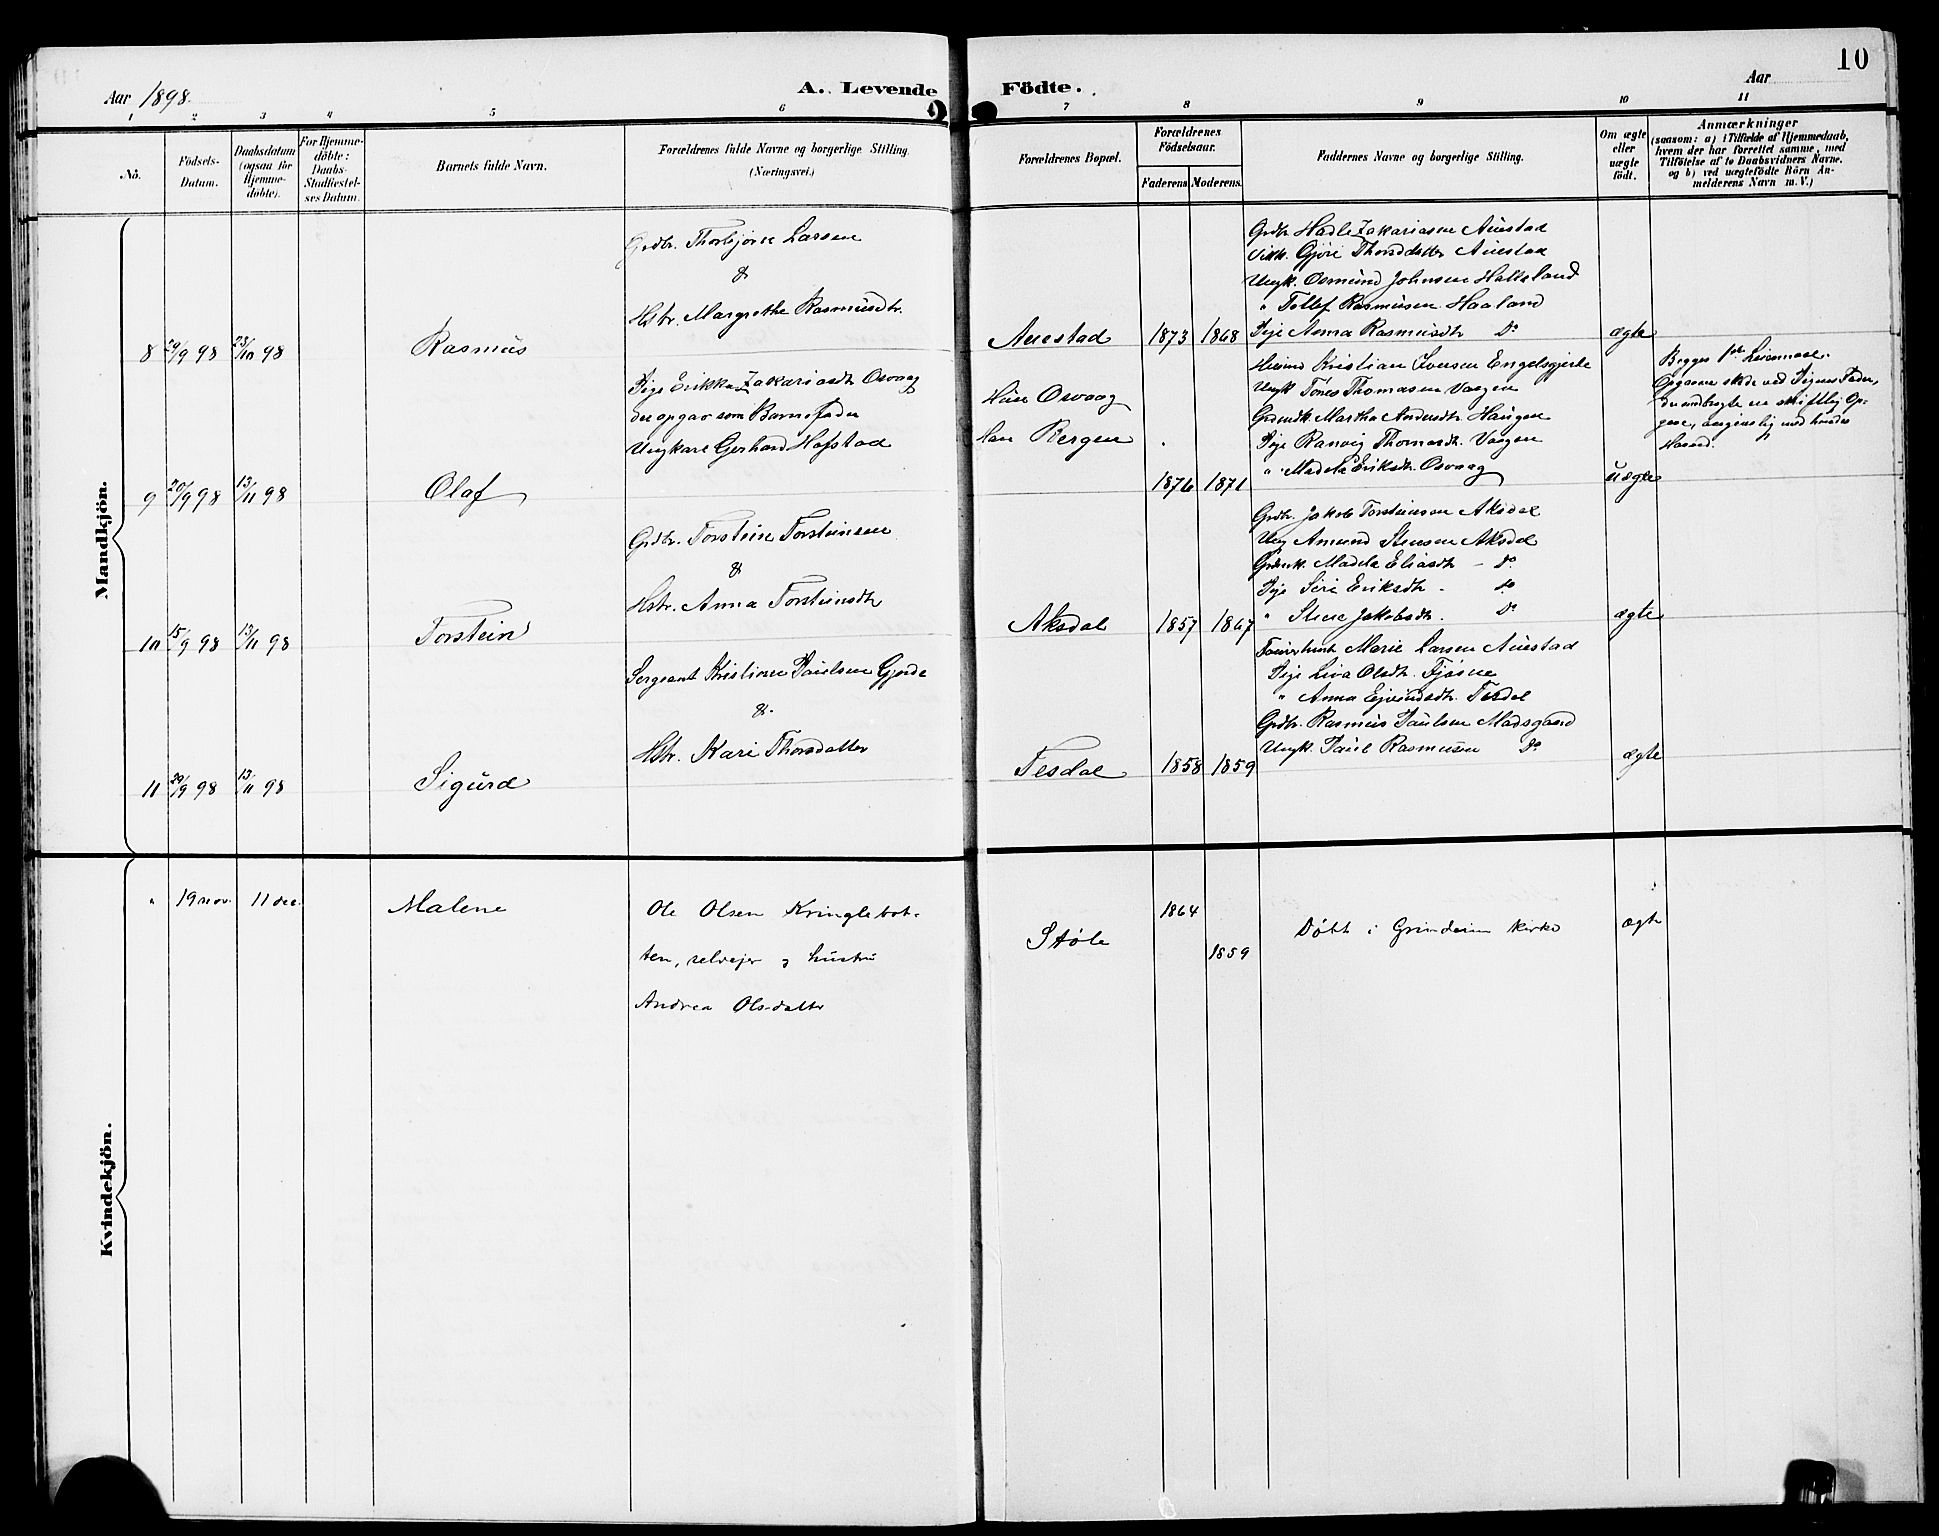 10
Aar 1898.
A. Levende
Fødte.
Aar
1 2 3 4 5 6 7 8 9 10 11
No.
Födsels-
Datum.
Daabsdatum
(ogsaa for
Hjemme-
døbte).
For Hjemme-
døbte:
Daabs-
Stadfæstel-
ses Datum.
Barnets fulde Navn.
Forældrenes fulde Navne og borgerlige Stilling
(Næringsvei.)
Forældrenes Bopæl.
Forældrenes
Födselsaar.
Faderens. Moderens.
Faddernes Navne og borgerlige Stilling.
Om ægte
eller
uægte
født.
Anmærkninger
(saasom: a) i Tilfælde af Hjemmedaab,
hvem der har forrettet samme, med
Tilföielse af to Daabsvidners Navne,
og b) ved uægtefödte Börn An-
melderens Navn m. V.)
Mandkjön.
8 29/9 98 23/10 98 Rasmus
Grdbr. Thorbjörn Larsen
&
Hstr. Margrethe Rasmusdtr.
Auestad 1873 1868
Grdbr. Hadle Zakariassen Auestad
Gjöri Auestad
Ungk. Osmund Johnsen
" Tollef Rasmusen Haaland
Pige Anna Rasmusdtr Do
ægte
9 20/9 98 13/11 98 Olaf
Pige Erikka Zakariasdtr Osvaag
der opgav som Barnefader
Ungkarl Gerhard Hofstad
Hun Osvaag
Han Bergen
1876 1871
Kristian Iversen Engelsgjerde
Ungk Tönes Thomasen Vaagen
Martha Andersdtr Haugen
Pige Ranvig Thomasdtr. Vaagen
" Madela Eriksdtr. Osvaag
uægte
Begges 1ste Leiermaal.
Opgaven skede ved Pigens Fader,
der medbragte en skriftlig Op-
gave, angivelig med hendes
Haand.
10 15/9 98 13/11 98 Torstein
Grdbr. Torstein Torsteinsen
&
Hstr. Anna Torsteinsdtr
Aksdal 1857 1867
Grdbr. Jakob Torsteinsen Aksdal
Ung Amund Stensen Aksdal
Madela Eliasdtr - Do
Pige Siri Eriksdtr - do
" Jakobsdtr. Do
ægte
11 29/9 98 13/11 98 Sigurd
Sergeant Kristian Paulsen Gjerde
&.
Hstr. Kari Thorsdatter
Tesdal 1858 1859
Marie Larsen Auestad
Pige Liva Olsdtr. Fjösne
" Anna Ejvindsdtr. Tesdal
Grdbr. Rasmus Paulsen Madsgaard
Ungk. Paul Rasmusen Do
ægte
Kvindekjön.
" 19 nov. 11 dec. Malene
Ole Olsen Kringlebot-
ten, selvejer og hustru
Andrea Olsdatter
Støle
1864
1859
Døbt i Grindeim kirke
ægte